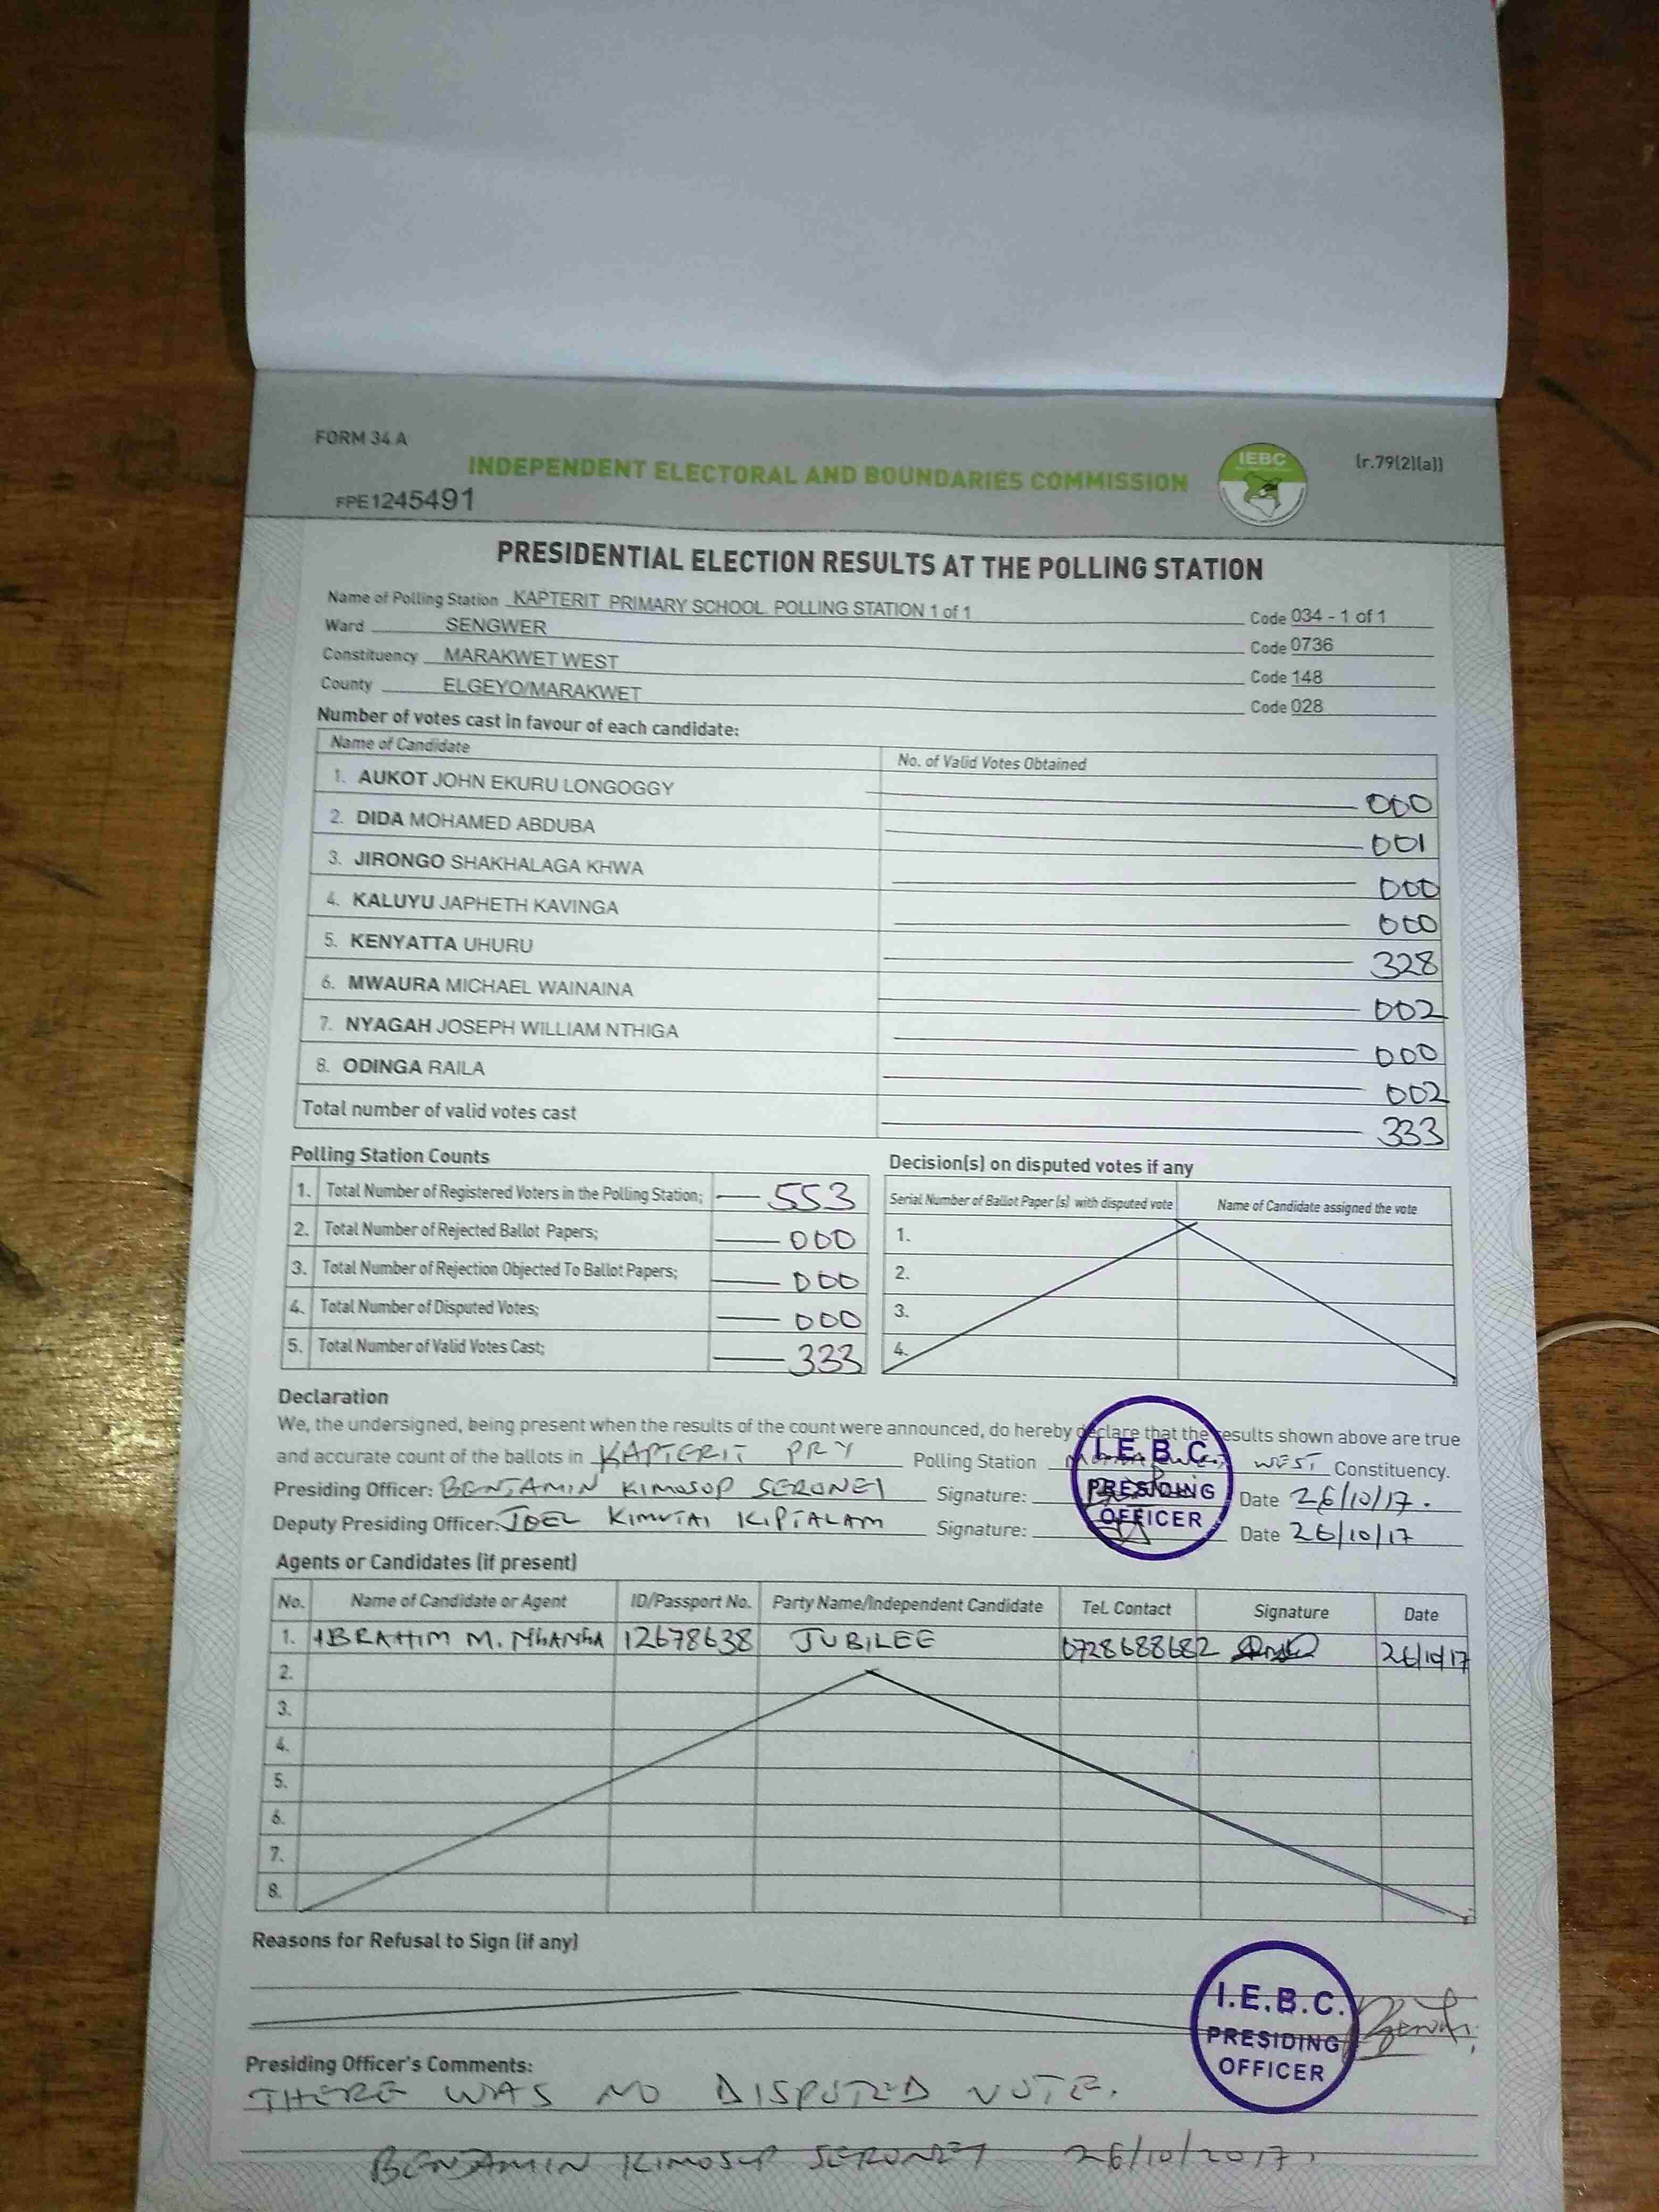 FORM 34 A
INDEPENDENT ELECTORAL AND BOUNDARIES COMMISSION
IEBC
(r.79(2)(a))
FPE1245491
PRESIDENTIAL ELECTION RESULTS AT THE POLLING STATION
Name of Polling Station KAPTERIT PRIMARY SCHOOL POLLING STATION 1 of 1 Code 034 - 1 of 1
Ward SENGWER Code 0736
Constituency MARAKWET WEST Code 148
County ELGEYO/MARAKWET Code 028
Number of votes cast in favour of each candidate:
Name of Candidate No. of Valid Votes Obtained
1. AUKOT JOHN EKURU LONGOGGY 000
2. DIDA MOHAMED ABDUBA 001
3. JIRONGO SHAKHALAGA KHWA 000
4. KALUYU JAPHETH KAVINGA 000
5. KENYATTA UHURU 328
6. MWAURA MICHAEL WAINAINA 002
7. NYAGAH JOSEPH WILLIAM NTHIGA 000
8. ODINGA RAILA 002
Total number of valid votes cast 333
Polling Station Counts
1. Total Number of Registered Voters in the Polling Station; 553
2. Total Number of Rejected Ballot Papers; 000
3. Total Number of Rejection Objected To Ballot Papers; 000
4. Total Number of Disputed Votes; 000
5. Total Number of Valid Votes Cast; 333
Decision(s) on disputed votes if any
Serial Number of Ballot Paper (s) with disputed vote Name of Candidate assigned the vote
1.
2.
3.
4.
Declaration
We, the undersigned, being present when the results of the count were announced, do hereby declare that the results shown above are true
and accurate count of the ballots in KAPTERIT PRY Polling Station WEST Constituency.
Presiding Officer: BENJAMIN KIMOSOP SERONEI Signature: Date 26/10/17.
Deputy Presiding Officer: JOEL KIMUTAI KIPTALAM Signature: Date 26/10/17
I.E.B.C.
PRESIDING
OFFICER
Agents or Candidates (if present)
No. Name of Candidate or Agent ID/Passport No. Party Name/Independent Candidate Tel. Contact Signature Date
1. IBRAHIM M. 12678638 JUBILEE 0728688682 26/10/17
2.
3.
4.
5.
6.
7.
8.
Reasons for Refusal to Sign (if any)
I.E.B.C.
PRESIDING
OFFICER
Presiding Officer's Comments:
THERE WAS NO DISPUTED VOTE.
BENJAMIN KIMOSOP SERONEI 26/10/2017.